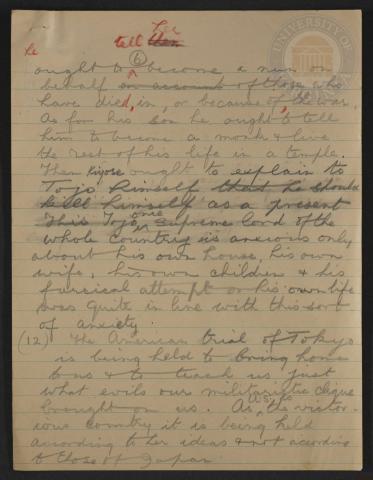 he tell her
(6)
ought to become a nun on
behalf on account of those who
have died, in, or because of, the war.
As for his son he ought to tell
him to become a monk & live
the rest of his life in a temple.
Then Kiyose ought to explain to
Tojo himself that he should
kill himself as a present
This Tojo, once supreme lord of the
whole country is anxious only
about his own house, his own
wife, his own children & his
farcical attempt on his own life
was quite in line with this sort
of anxiety.
(12) The American trial of Tokyo
is being held to bring home
to us & to teach us just
what evils our militaristic clique
brought on us. As the victor-
ious country it is being held
according to her ideas & not according
to those of Japan.
UNIVERSITY OF VIRGINIA